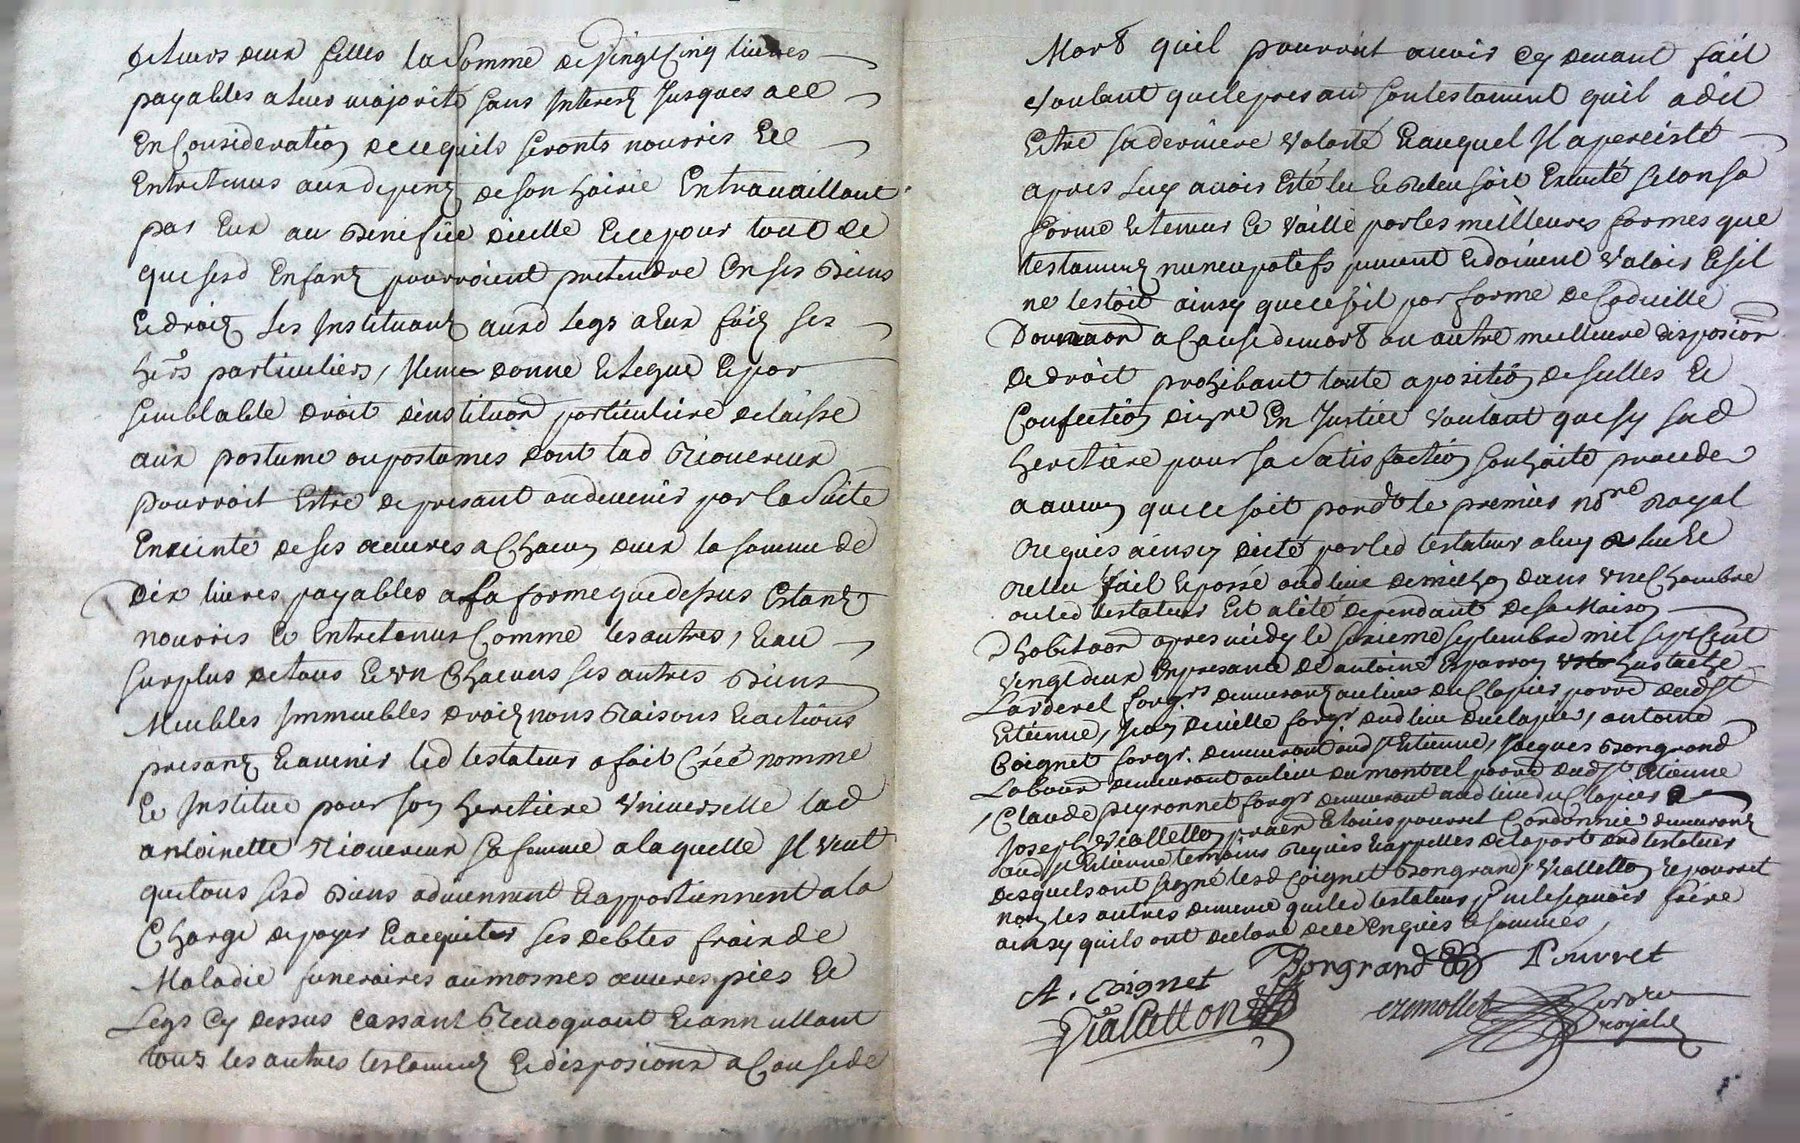 de leurs deux filles la somme de vingt cinq livres
payables a leur majorité sans Interest Jusques a ce
En Consideration de ce quils seronts nourris Et
Entretenus aux depenz de son hoirie En travaillant
par Eux au Benefice dicelle Et ce pour tout ce
que sesd Enfanz pourroient pretendre En ses Biens
Et droiz Les Instituanz auxd Legs a Eux faiz ses
hers particuliers, Item donne Et Legue Et par
semblable droit dinstituon particuliere delaisse
aux postume ou postumes dont lad Riouereux
pourroit Estre de presant ou devenir par la Suite
Enceinte de ses œuvres a Chacun deux la somme de
dix livres payables a la forme que dessus Estanz
nourris Et Entretenus Comme les autres, Et au
surplus de tous Et un Chacuns ses autres Biens
Meubles Immeubles droiz noms Raisons Et actions
presanz Et avenir led testateur a fait Créé nommé
Et Institue pour son heretiere Universelle lad
antoinette Riouereux sa femme a laquelle Il veut
que tous sesd Biens adviennent Et appartiennent a la
Charge de payer Et acquiter ses debtes fraix de
Maladie funeraires aumosnes œuvres pies Et
Legs Cy dessus Cassant Revoquant Et annullant
tous les autres testamenz Et disposions a Cause de
Mort quil pourroit avoir Cy devant fait
Voulant que le presant son testament quil a dit
Estre sa derniere volonté Et auquel Il a percisté
apres Luy avoir Esté lu Et Releu soit Executé selon sa
forme Et teneur Et vaille par les meilleures formes que
testamenz nuncupatifs peuvent Et doivent valoir Et sil
ne lestoit ainsy que ce soit par forme de Codicille
Donnaon a Cause de mort ou autre meilleure disposion
de droit prohibant toute aposition de scelles Et
Confection dinvre En Justice voulant que sy sad
heretiere pour sa satisfaction souhaite proceder
a aucun que ce soit pardt le premier nore Royal
Requis ainsy dicté par led testateur a luy leu Et
Releu fait Et passé aud lieu de dans une Chambre
ou led testateur Est alité dependant de sa Maison
dhabitaon apres midy le seizieme septembre mil sept Cent
vingt deux En presance de antoine hustache
Larderel forgr demeuranz au lieu du Clapier parre dud St
Etienne, Jean forgr dud lieu du Clapier, antoine
Coignet forgr. demeurant aud St Etienne, Jacques Bongrand
Labour demeurant au lieu du montcel parre dud St Etienne
Claude peyronnet forgr demeurant aud lieu du Clapier
Joseph Vialleton Et louis pourret Cordonnier demeuranz
aud St Etienne temoins Requis Et appelles de la part dud testateur
desquels ont signé lesd Coignet Bongrand, Vialleton, Et pourret
non les autres de meme que led testateur pr ne le sçavoir faire
ainsy quils ont declaré de ce Enquis Et sommes,
A. Coignet Bongrand Pourret
Vialleton
royal